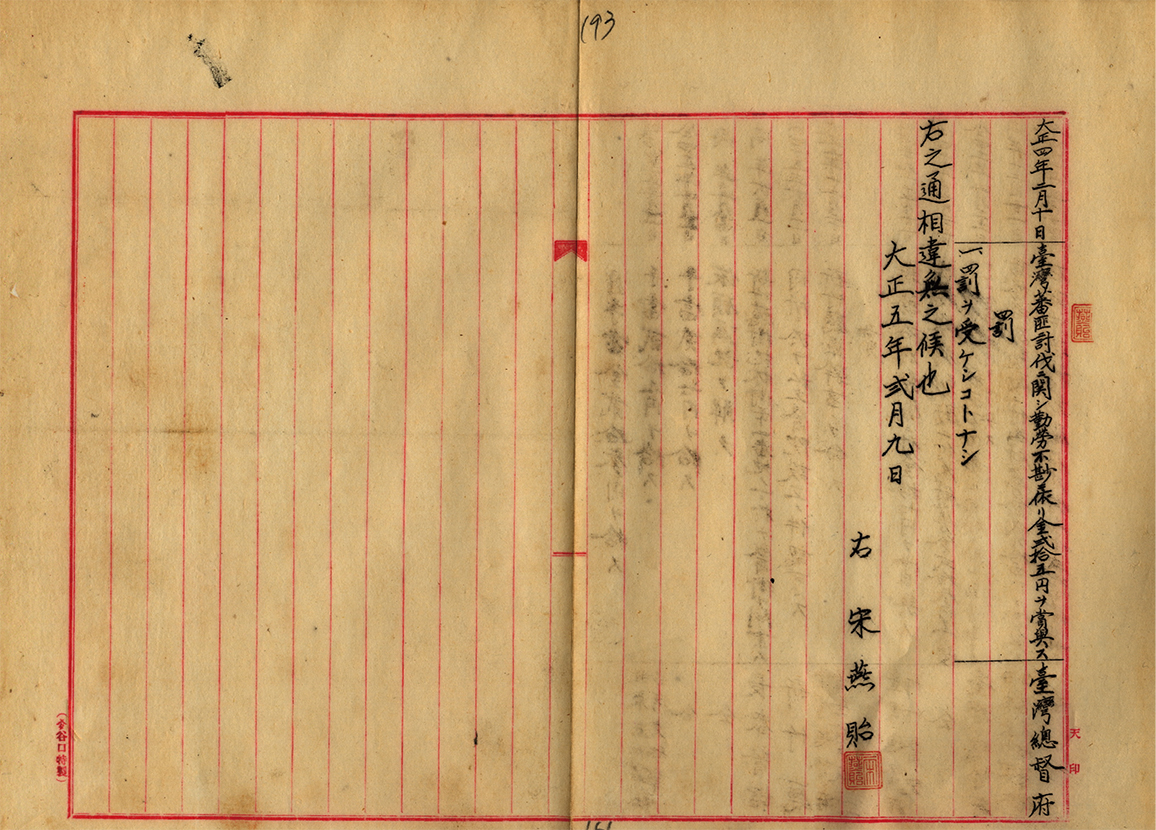 193
大正四年二月十日 臺灣蕃匪討伐ニ関シ勤勞不尠依リ金弍拾五円ヲ賞與ス 臺灣總督府
罰
一、罰ヲ受ケシコトナシ
右之通相違無之候也
大正五年弍月九日
右 宋燕貽
天印
谷口特製
161